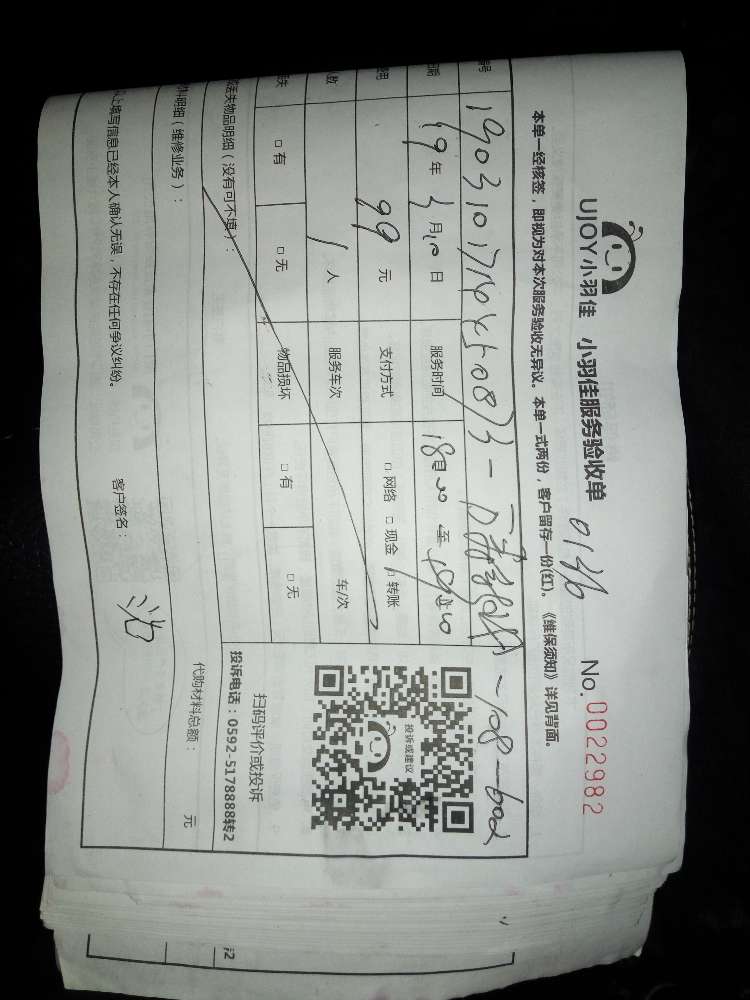 UJOY小羽佳 小羽佳服务验收单 0136 No.0022982
本单一经核签，即视为对本次服务验收无异议。本单一式两份，客户留存一份(红)。《维保须知》详见背面。
-108-602
19年3月10日 服务时间 至
99元 支付方式 □网络 □现金 □转账
1人 服务车次 车/次
□有 □无 物品损坏 □有 □无
投诉或建议
扫码评价或投诉
投诉电话：0592-5178888转2
丢失物品明细（没有可不填）：
明细（维修业务）： 代购材料总额： 元
上填写信息已经本人确认无误，不存在任何争议纠纷。 客户签名：